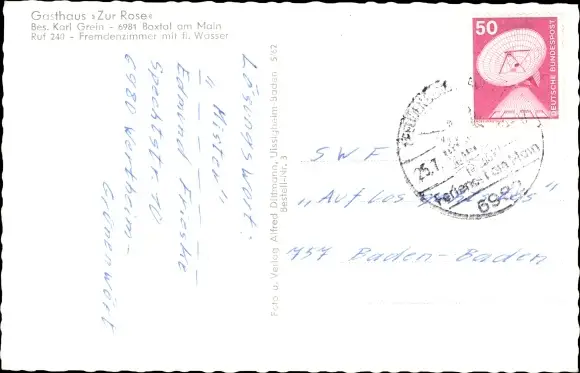 Gasthaus »Zur Rose«
Bes. Karl Grein - 6981 Boxtal am Main
Ruf 240 - Fremdenzimmer mit fl. Wasser
Lösungswort:
"Mister"
Edmund
Spechtstr. 10
6980 Wertheim-
Grünenwört
Foto u. Verlag Alfred Dittmann, Uissigheim Baden 5/62
Bestell-Nr. 3
50
DEUTSCHE BUNDESPOST
25.7.
Ferienort am Main
6982
SWF
"Auf Los geht's los"
757 Baden-Baden